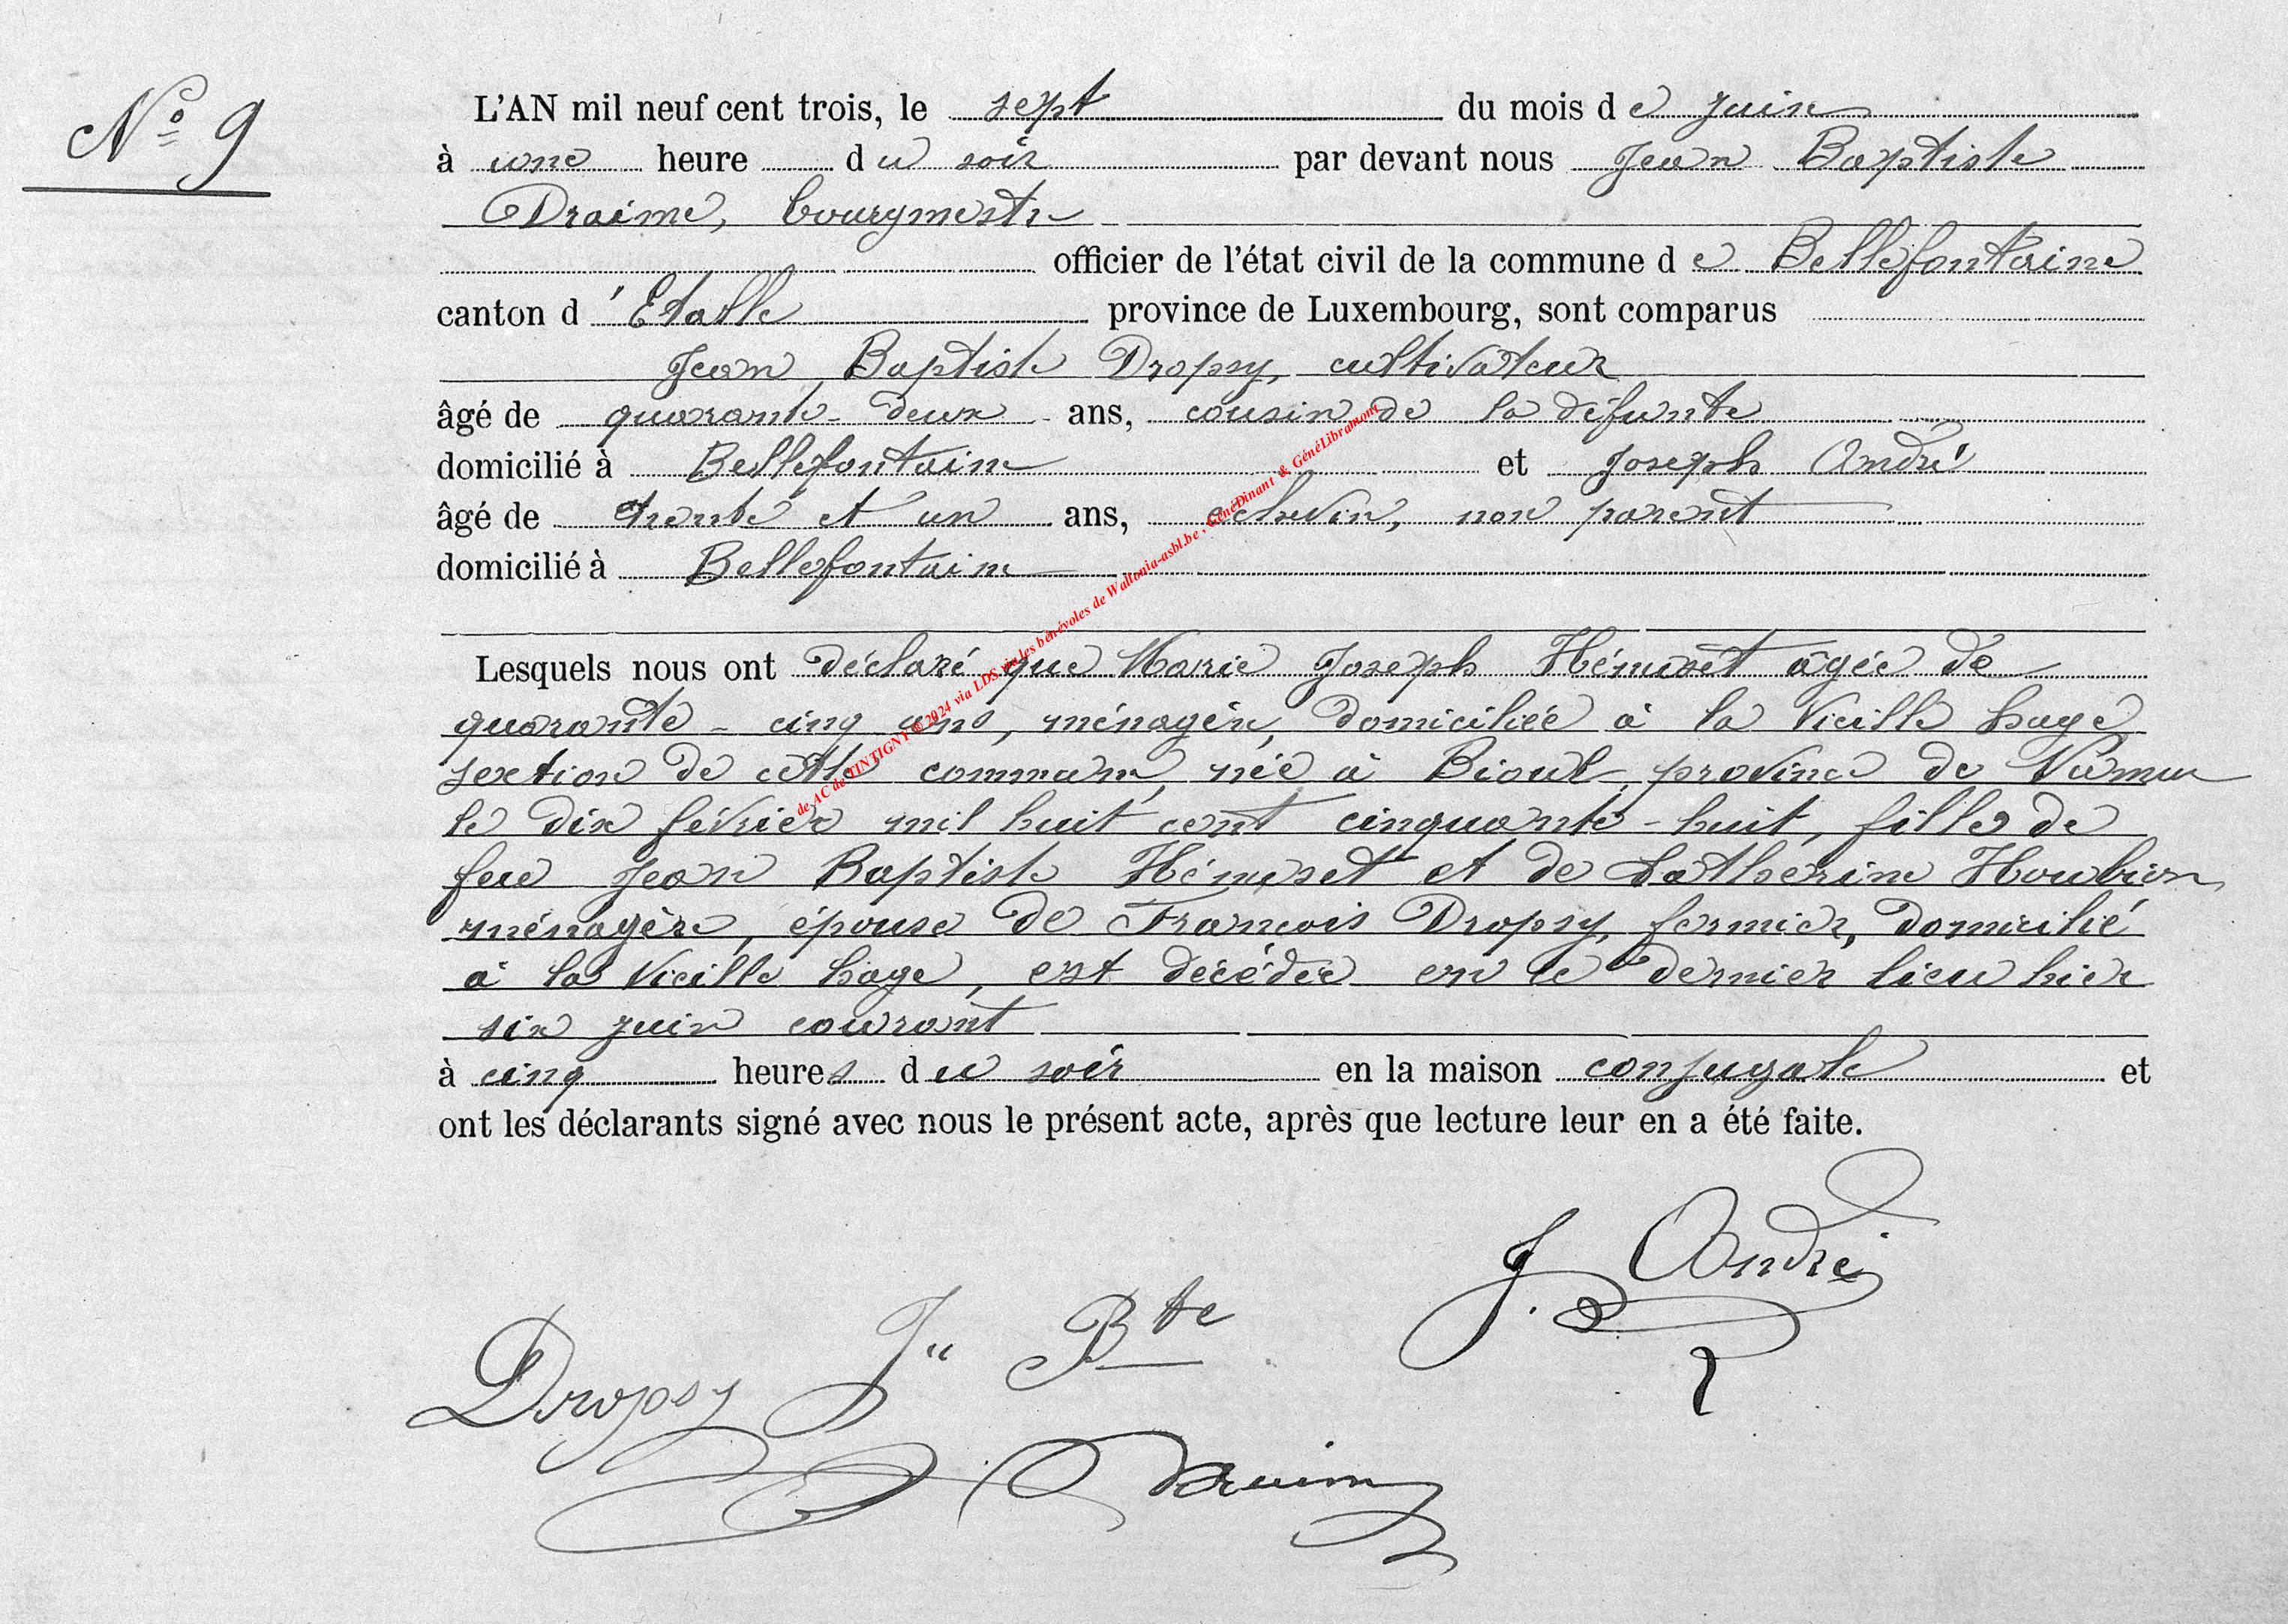 N° 9
L'AN mil neuf cent trois, le sept du mois de juin
à une heure du soir par devant nous Jean Baptiste
Draime, bourgmestre
officier de l'état civil de la commune de Bellefontaine
canton d'Etalle province de Luxembourg, sont comparus
Jean Baptiste Dropsy, cultivateur
âgé de quarante-deux ans, cousin de la défunte
domicilié à Bellefontaine et Joseph André
âgé de trente et un ans, echevin, non parent
domicilié à Bellefontaine
Lesquels nous ont déclaré que Marie Joseph Hémuset âgée de
quarante-cinq ans, ménagère, domiciliée à la Vieille haye
section de cette commune, née à Bioul, province de Namur
le dix février mil huit cent cinquante-huit, fille de
feu Jean Baptiste Hémuset et de Catherine Houbion
ménagère, épouse de François Dropsy, fermier, domicilié
à la Vieille haye, est décédée en ce dernier lieu hier
six juin courant
à cinq heures du soir en la maison conjugale et
ont les déclarants signé avec nous le présent acte, après que lecture leur en a été faite.
J. André
Dropsy Jn Bte
Draime
de AC de TINTIGNY © 2024 via LDS via les bénévoles de Wallonia-asbl.be, GénéDinant & GénéLibramont